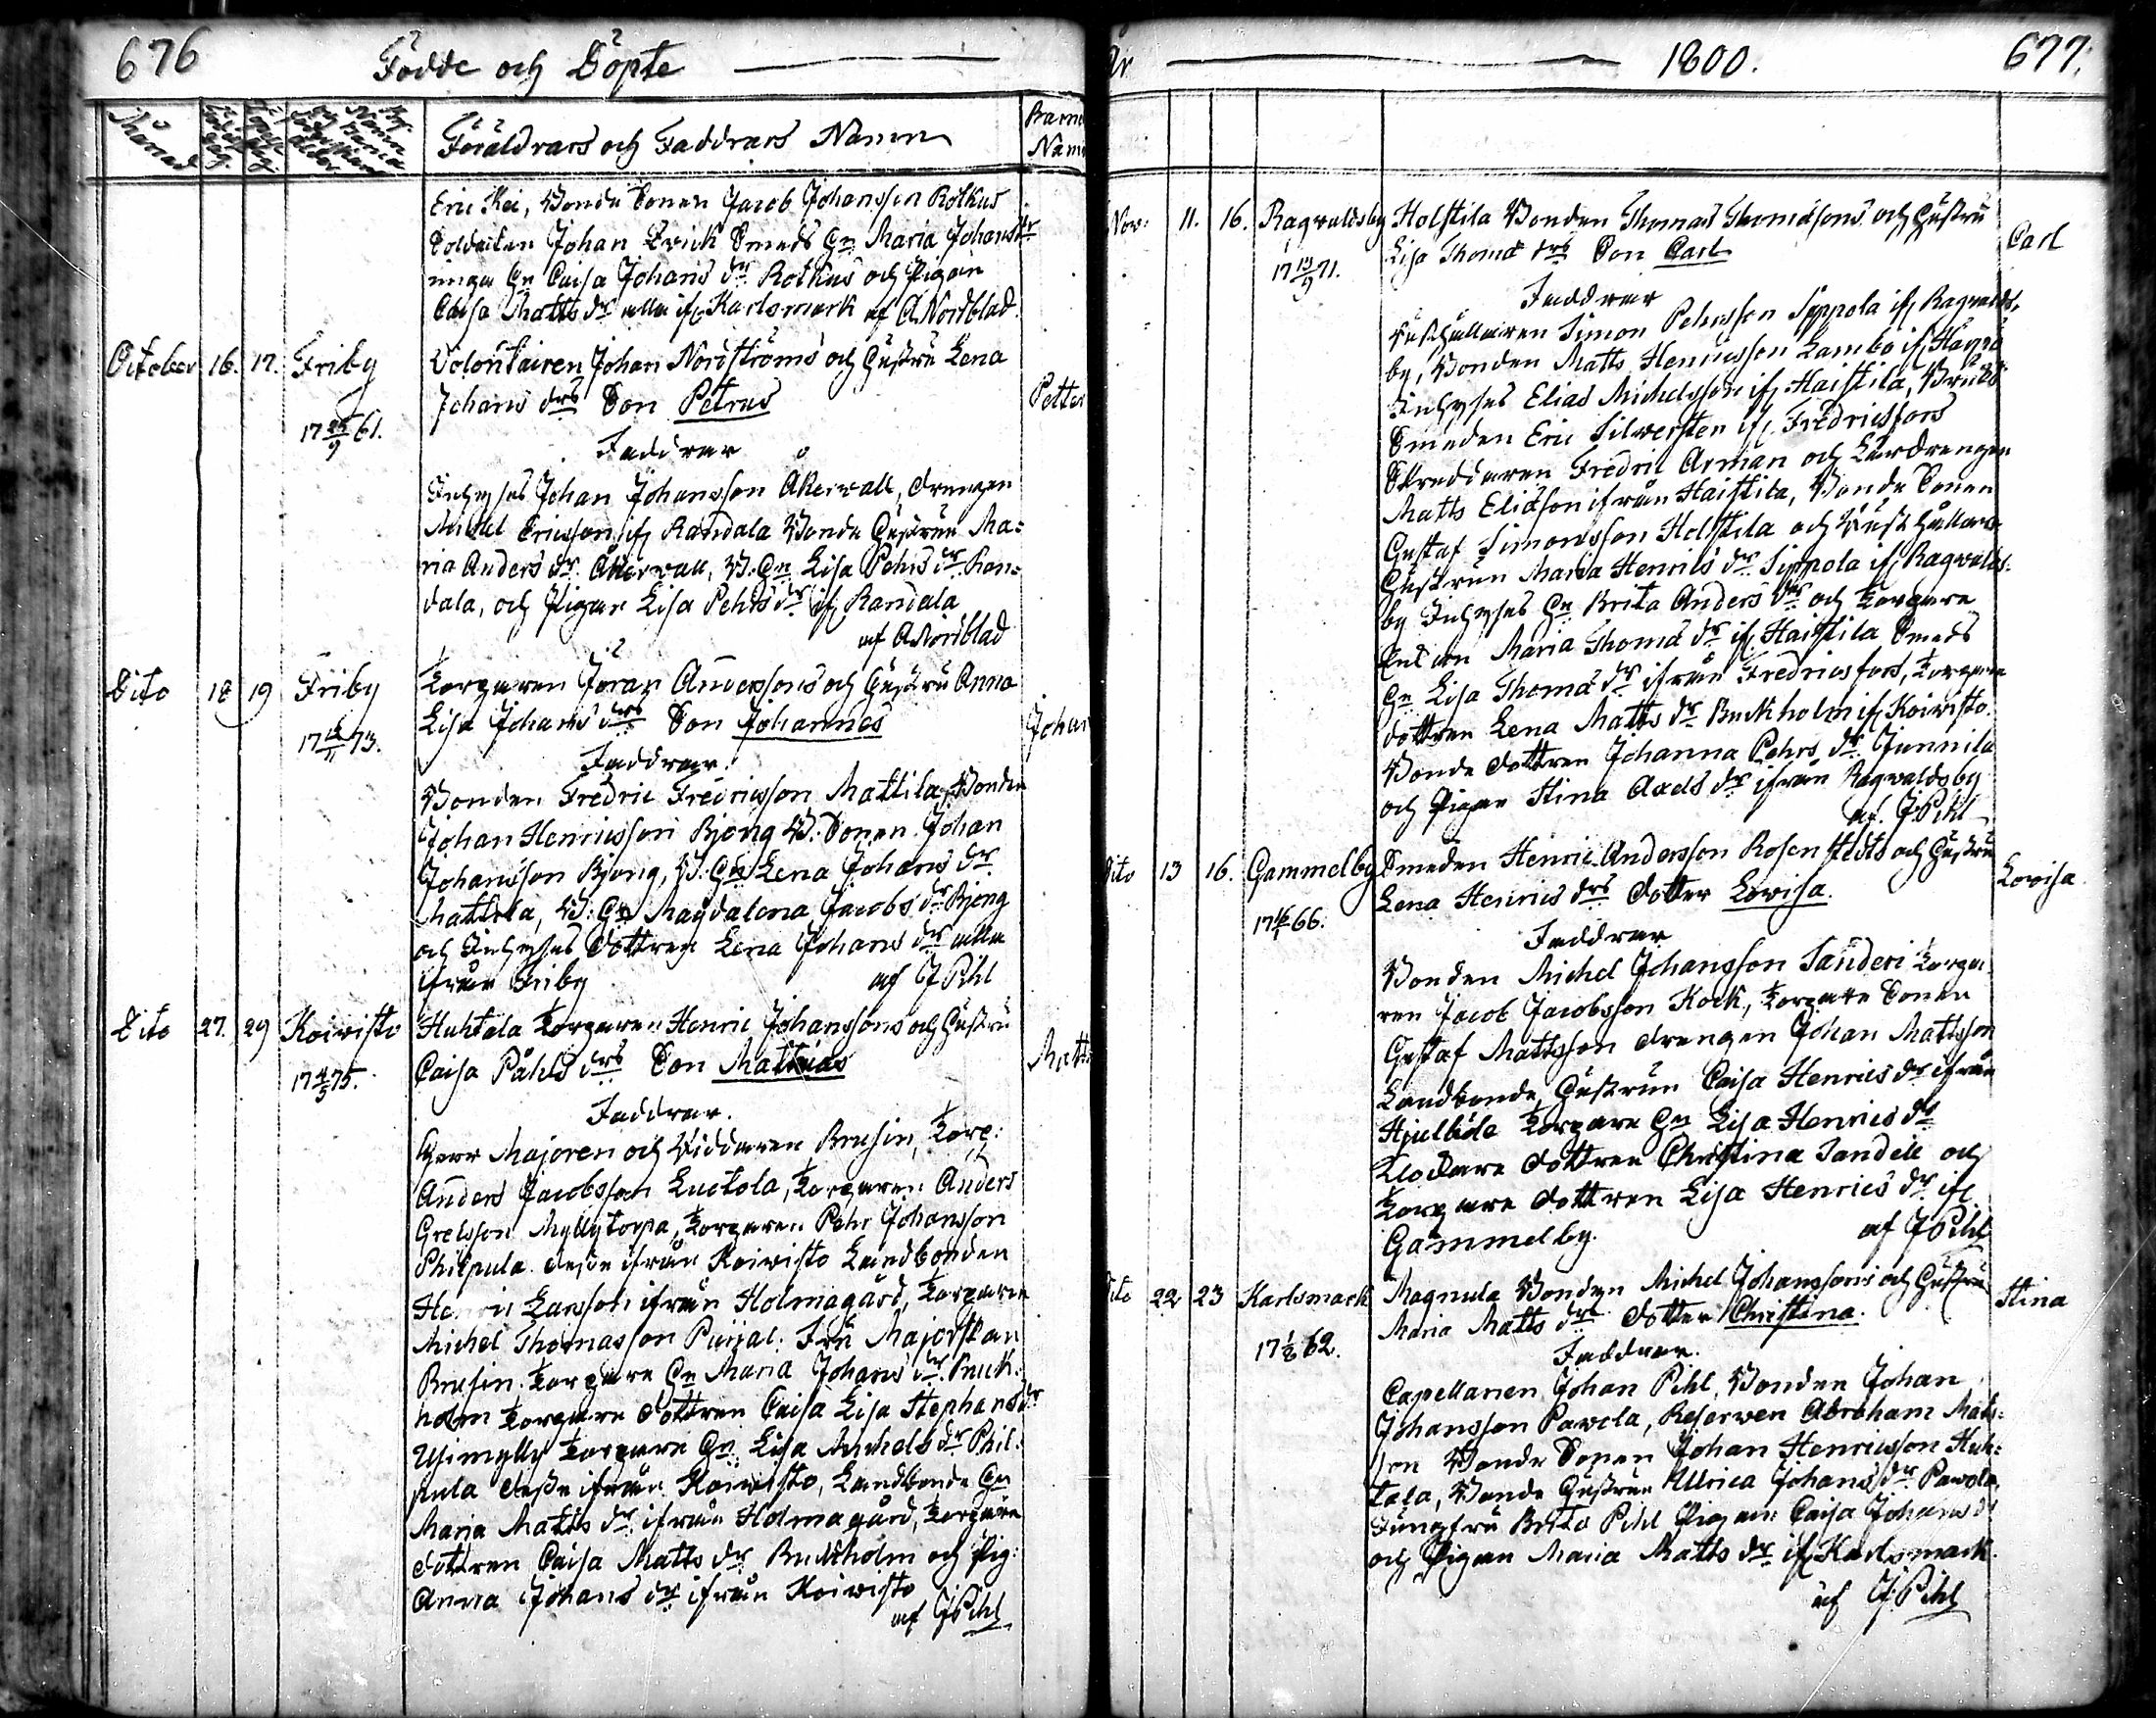 676
Födde och Döpte
Månad
Föräldrars och Faddrars Namn
Barn
Namn
Eric Kei, Bonde Sonen Jacob Johansson Rotkus
Soldaten Johan Qvick Smeds Hn Maria Johans dr
Hn Caisa Johans dr Rotkus och Pigan
Caisa Matts dr alla ifr Karlsmark af A Nordblad
October 16. 17. Friby
17 9 61.
Volontairen Johan Nordströms och Hustru Lena
Johans drs Son Petrus
Petter
Faddrar
Inhyses Johan Johansson Åkerwall, drengen
Michel Ericsson ifr Randala Bonde Hustrun Ma=
ria Anders dr Åkerwall, B. Hn Lisa Pehrs dr Ran=
dala, och Pigan Lisa Pehrs dr ifr Randala
af A Nordblad
Dito 18 19 Friby
17 73.
Torparen Jöran Anderssons och Hustru Anna
Lisa Johans drs Son Johannes
Johan
Faddrar.
Bonden Fredric Fredricsson Mattila, Bonden
Johan Henricsson Bjong B: Sonen Johan
Johansson Bjong, B: Hn Lena Johans dr
Mattila, B: Hn Magdalena Jacobs dr Bjong
och Inhyses Dottren Lena Johans dr alla
ifrån Friby af J Pihl
Dito 27. 29 Koivisto
17 4/5 75.
Huhtala Torparen Henric Johanssons och Hustru
Caisa Påhls drs Son Mathias
Matts
Faddrar.
Herr Majoren och Riddaren Brusin, Torp:
Anders Jacobsson Luotola, Torparen Anders
Grelsson Myllytorpa, Torparen Pehr Johansson
Philpula desse ifrån Koivisto Landbonden
Henric Larsson ifrån Holmagård, Torparen
Michel Thomasson Fru Majorskan
Brusin. Torpare Hn Maria Johans dr Buck=
holm Torpare Dottren Caisa Lisa Stephans dr
Usimylly Torpare Hn Lisa Michels dr Phil=
pula desse ifrån Koivisto, Landbonde Hn
Maria Matts dr ifrån Holmagård, Torpare
dottren Caisa Matts dr Buckholm och Pig:
Anna Johans dr ifrån Koivisto
af J Pihl
År 1800. 677.
Nov: 11. 16. Ragvaldsby
17 13/9 71.
Holstila Bonden Thomas Thomassons och Hustru
Lisa Thomæ drs Son Carl
Carl
Faddrar
Rusthållaren Simon Pehrsson Sippola ifr Ragvalds=
by, Bonden Matts Henricsson Lambo ifr
Inhyses Elias Michelsson ifr Haistila, Bruks
Smeden Eric Silversten ifr Fredricsfors
Skreddaren Fredric Arman och Lärdrengen
Matts Eliasson ifrån Haistila, Bonde Sonen
Gustaf Simonsson Holstila och Rusthållare
Hustrun Maria Henrics dr Sippola ifr Ragvalds=
by Inhyses Hn Brita Anders dr och Torpare
Enkan Maria Thomæ dr ifr Haistila Smeds
Hn Lisa Thomæ dr ifrån Fredricsfors, Torpare
dottren Lena Matts dr Buckholm ifr Koivisto.
Bonde dottren Johanna Pehrs dr Junnila
och Pigan Stina Axels dr ifrån Ragvaldsby
af. J Pihl
Dito 13 16. Gammelby
17 66.
Smeden Henric Andersson Rosenstedts och Hustru
Lena Henrics drs Dotter Lovisa.
Lovisa
Faddrar
Bonden Michel Johansson Sanderi Torpa=
ren Jacob Jacobsson Kock, Torpare Sonen
Gustaf Mattsson drengen Johan Mattsson
Landbonde Hustrun Caisa Henrics dr ifrån
Hjulböle Torpare Hn Lisa Henrics dr
Klockare dottren Christina Sandell och
Torpare dottren Lisa Henrics dr ifr
Gammelby. af J Pihl
Dito 22 23 Karlsmark
17 62.
Magnula Bonden Michel Johanssons och Hustru
Maria Matts drs Dotter Christina.
Stina
Faddrar.
Capellanen Johan Pihl, Bonden Johan
Johansson Pavola, Reserven Abraham Mats=
son Bonde Sonen Johan Henricsson Huh=
tala, Bonde Hustrun Ullrica Johans dr Pavola,
Jungfru Brita Pihl Pigan Caisa Johans dr
och Pigan Maria Matts dr ifr Karlsmark.
af J. Pihl